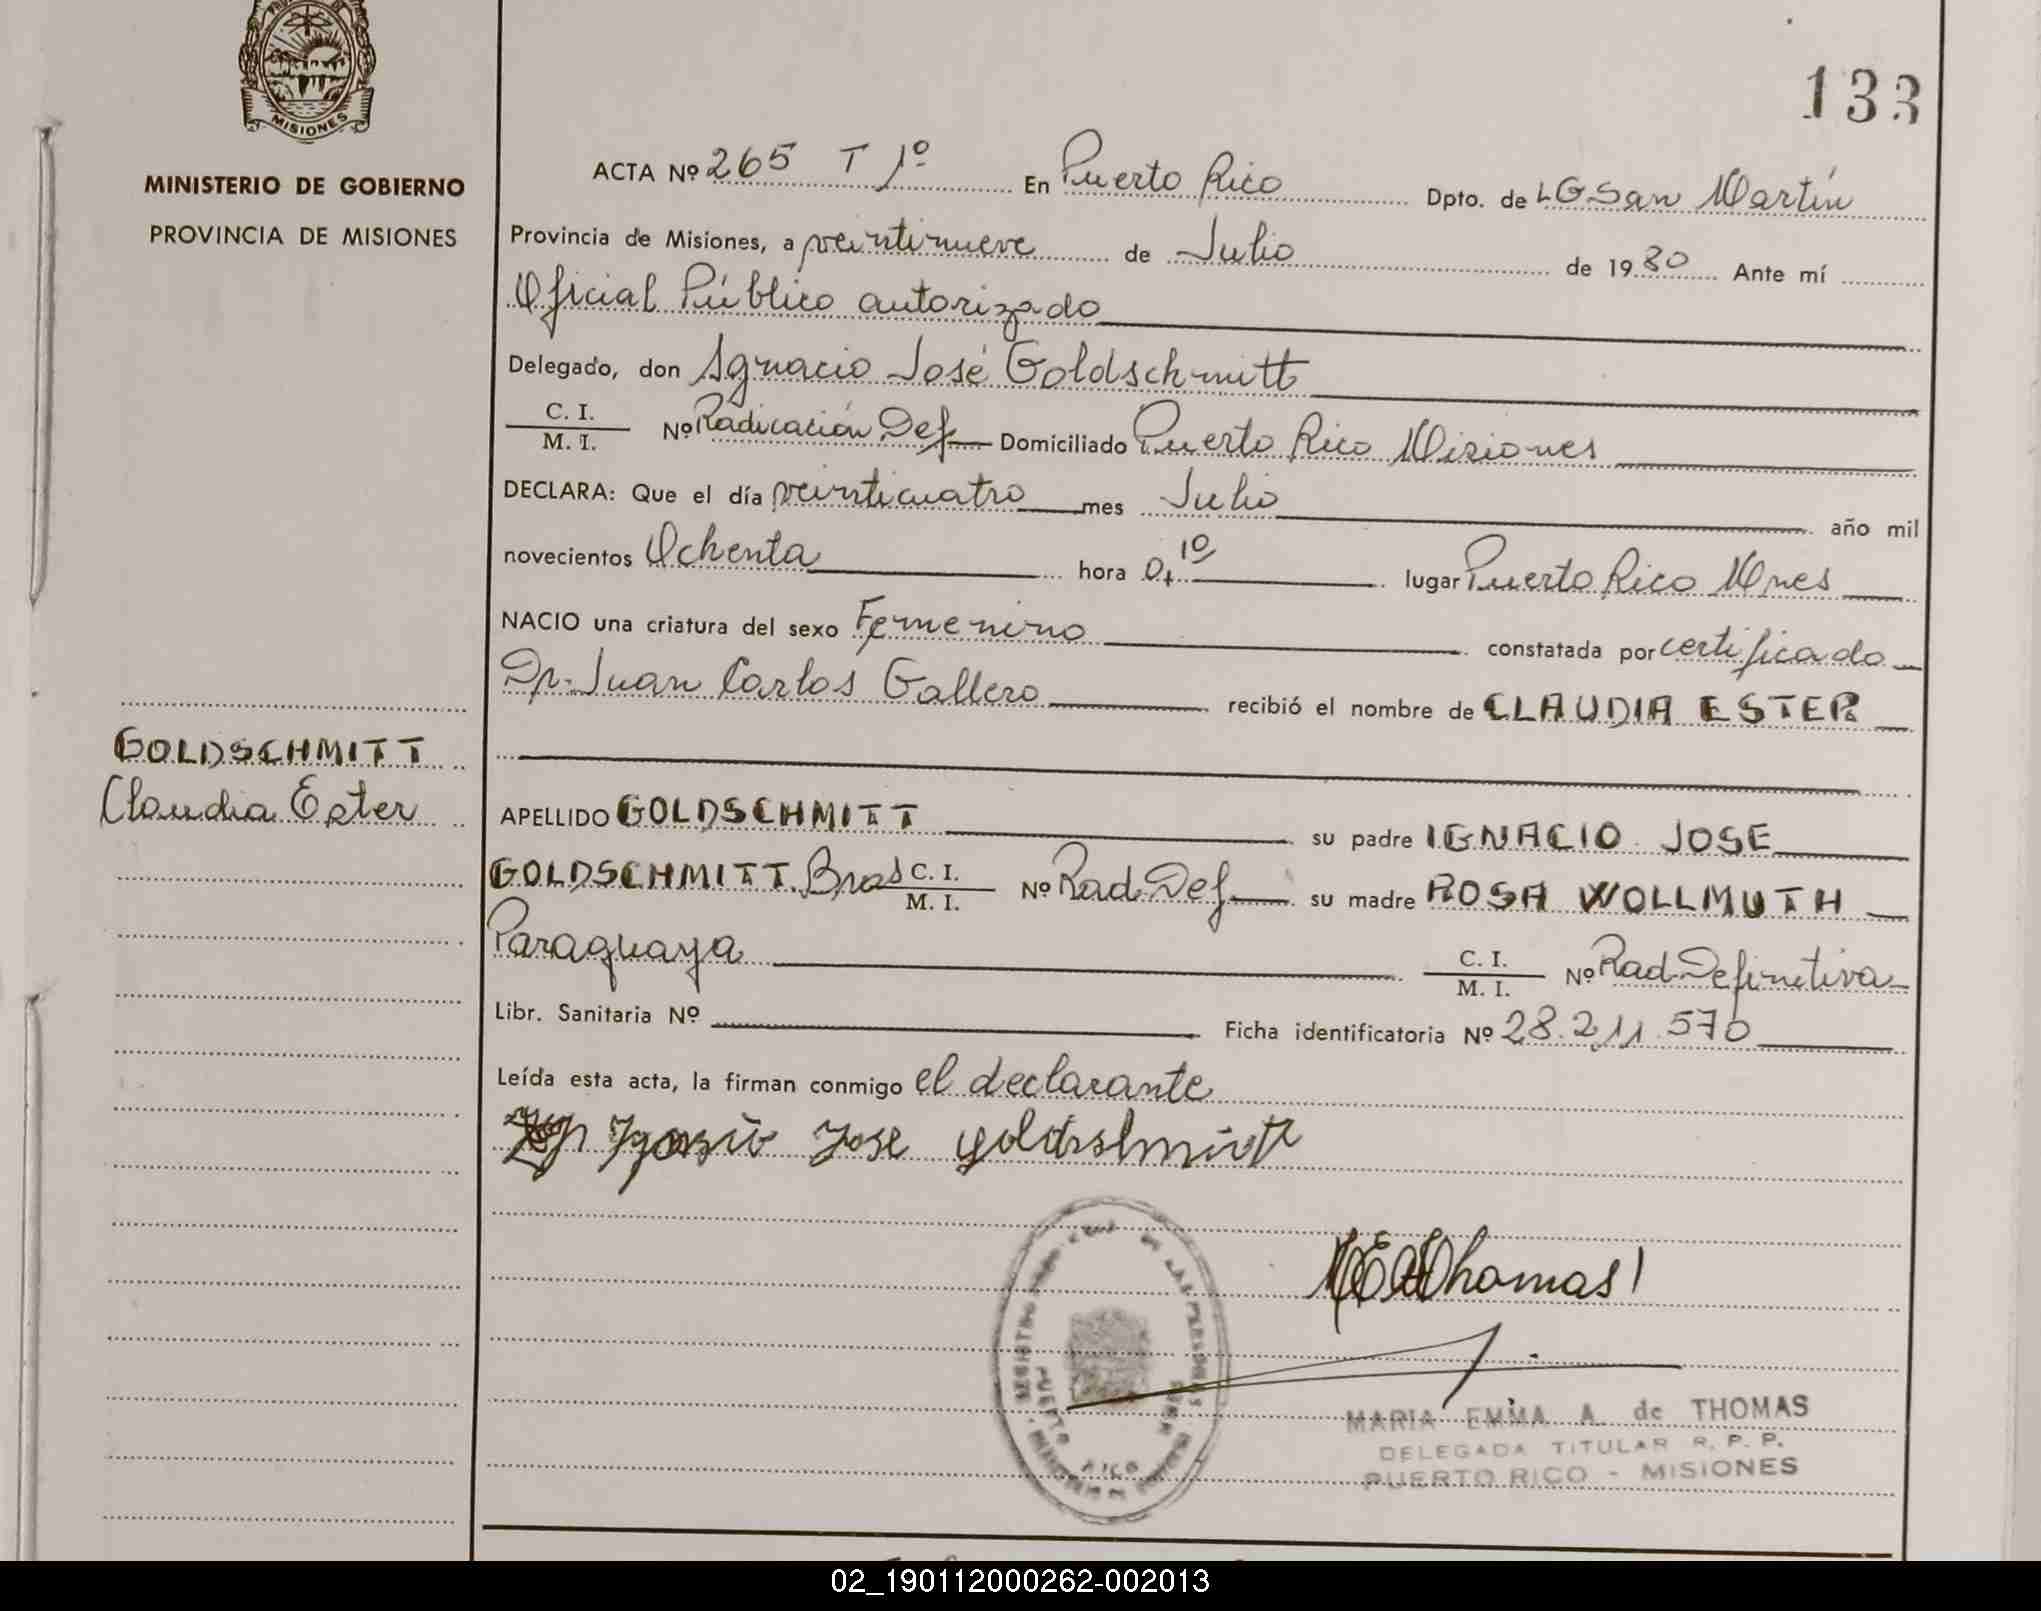 MISIONES
133
MINISTERIO DE GOBIERNO
PROVINCIA DE MISIONES
ACTA Nº 265 T 1º En Puerto Rico Dpto. de LG San Martín
Provincia de Misiones, a veintinueve de Julio de 1980 Ante mí
Oficial Público autorizado
Delegado, don Ignacio José Goldschmitt
C. I.
M. I. Nº Radicación Def Domiciliado Puerto Rico Misiones
DECLARA: Que el día veinticuatro mes Julio año mil
novecientos Ochenta hora 04 10 lugar Puerto Rico Mnes
NACIO una criatura del sexo Femenino constatada por certificado
Dr. Juan Carlos Gallero recibió el nombre de CLAUDIA ESTER
GOLDSCHMITT
Claudia Ester
APELLIDO GOLDSCHMITT su padre IGNACIO JOSE
GOLDSCHMITT. Bras C. I.
M. I. Nº Rad Def su madre ROSA WOLLMUTH
Paraguaya C. I.
M. I. Nº Rad Definitiva
Libr. Sanitaria Nº Ficha identificatoria Nº 28.211.570
Leída esta acta, la firman conmigo el declarante
Jose
MEAdThomas
PUERTO RICO
MARIA EMMA A. de THOMAS
DELEGADA TITULAR R. P. P.
PUERTO RICO - MISIONES
02_190112000262-002013